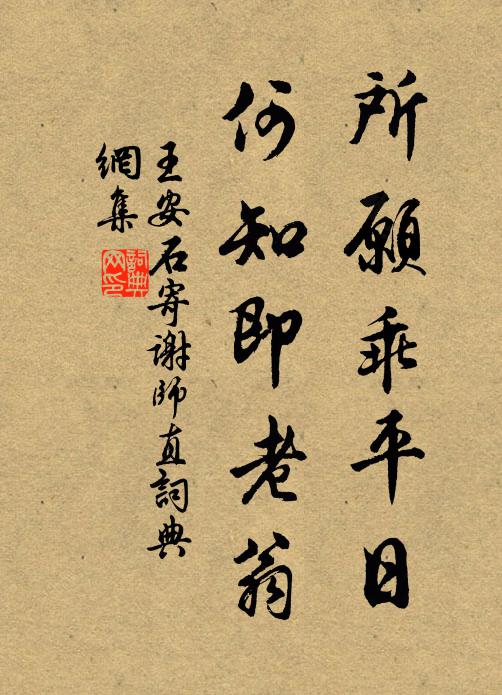 所願乖平日
何知即老翁
王安石寄謝師直詞典
網集
詞典網印